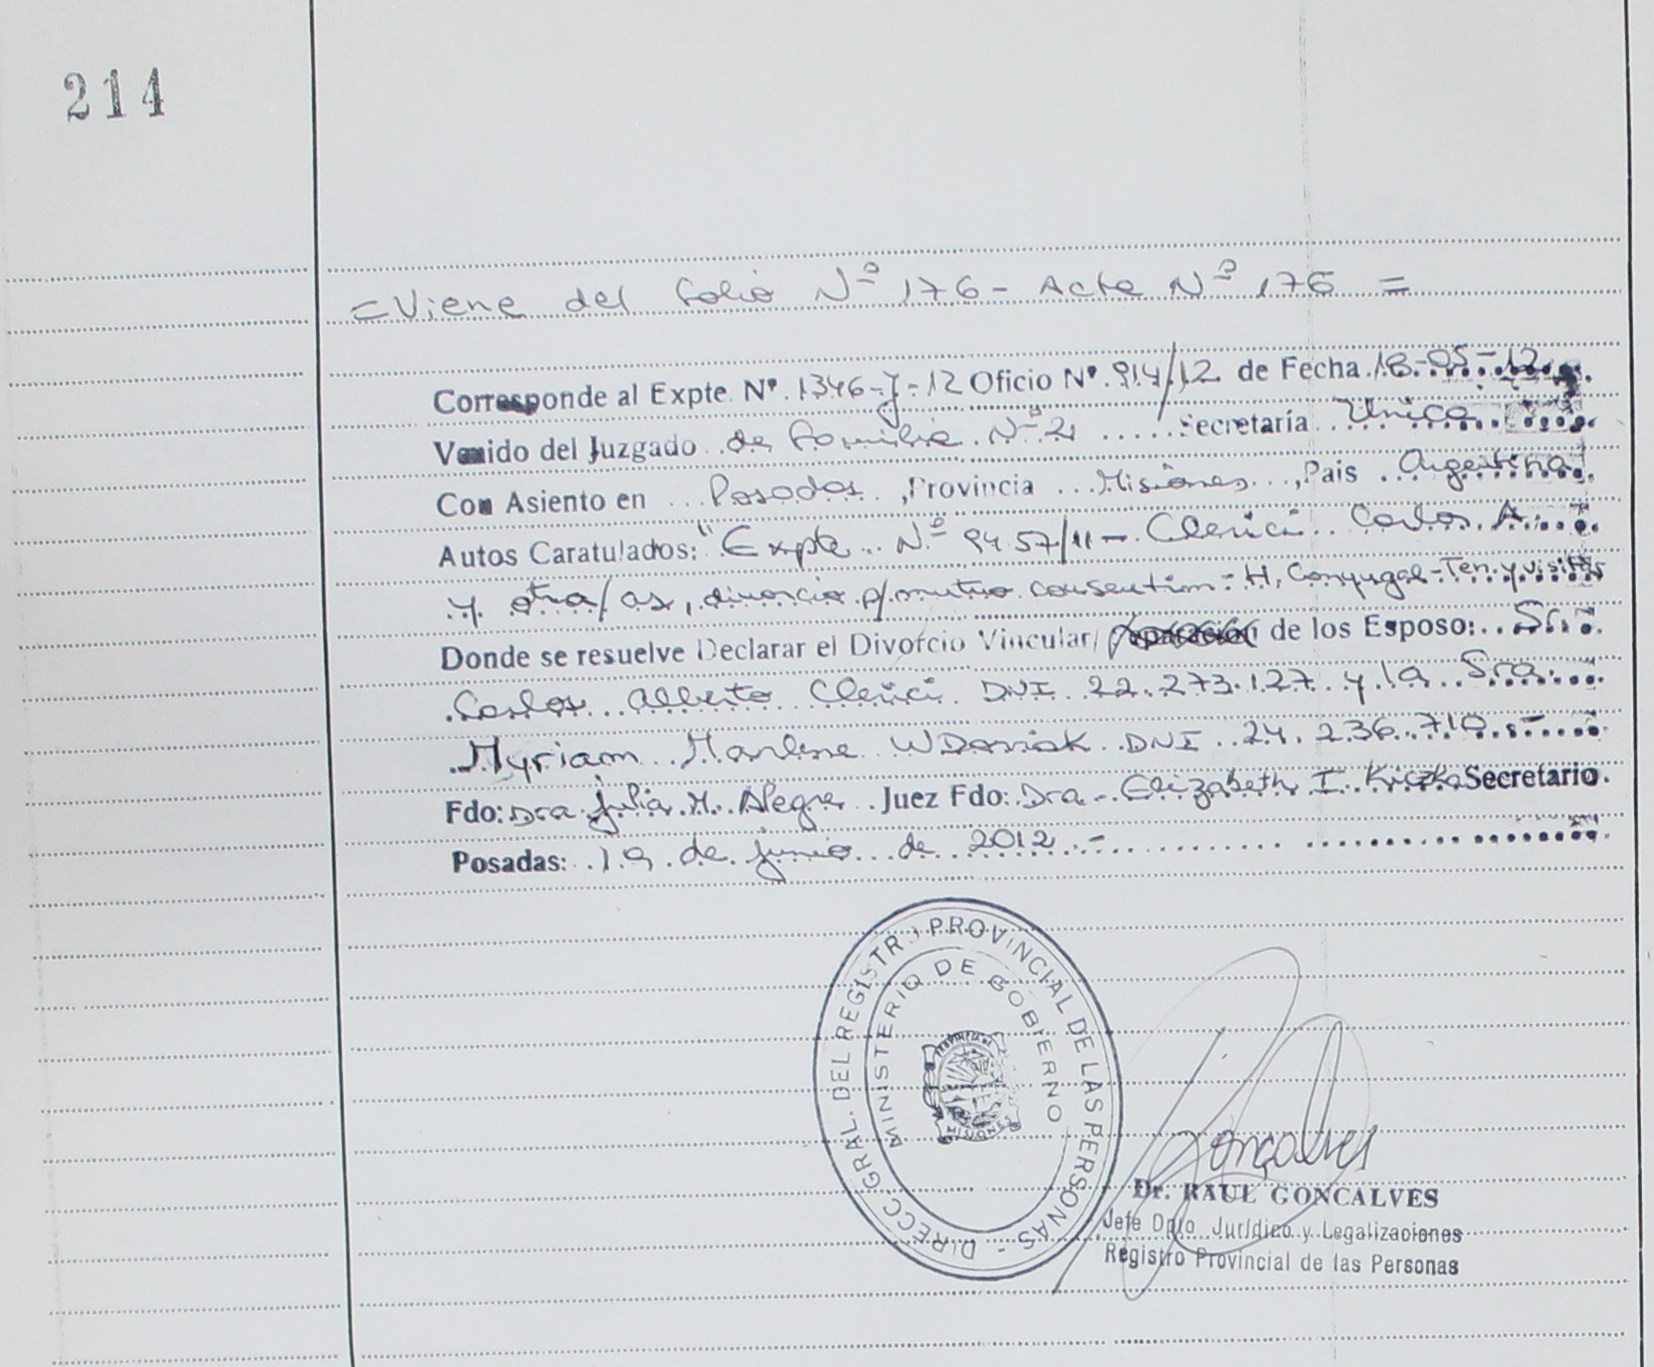 214
= Viene del folio Nº 176 - Acta Nº 176 =
Corresponde al Expte Nº. 1346-J-12 Oficio Nº. 914/12 de Fecha 18-05-12
Venido del Juzgado de Familia Nº 2 Secretaría Unica
Con Asiento en Posadas, Provincia Misiones, Pais Argentina
Autos Caratulados: "Expte. Nº 9457/11 - Clerici Carlos A.
y otra/as, divorcio p/mutuo consentim - H. Conyugal - Ten. y visitas
Donde se resuelve Declarar el Divorcio Vincular/ Separación de los Esposo: Sr.
Carlos Alberto Clerici DNI 22.273.127 y la Sra.
Myriam Marlene DNI 24.236.710.-
Fdo: Dra Julia M. Alegre Juez Fdo: Dra. Elizabeth I. Kiczka Secretario.
Posadas: 19 de junio de 2012.-
DIRECC GRAL. DEL REGISTRO PROVINCIAL DE LAS PERSONAS -
MINISTERIO DE GOBIERNO
PROVINCIA DE
MISIONES
Gonçalves
Dr. RAUL GONCALVES
Jefe Dpto. Jurídico y Legalizaciones
Registro Provincial de las Personas